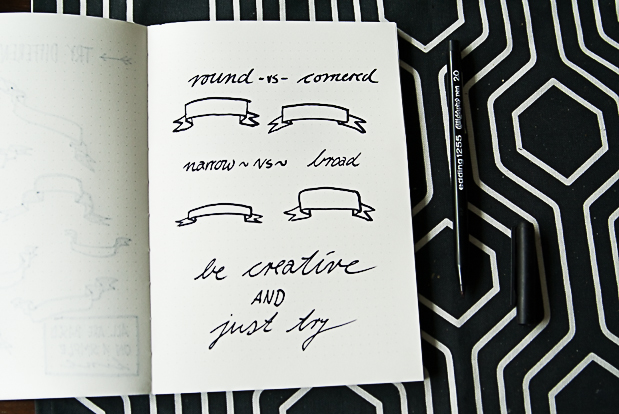 round -vs- cornered
narrow ~ vs ~ broad
be creative
AND
just try
edding 1255 calligraphy pen 2.0